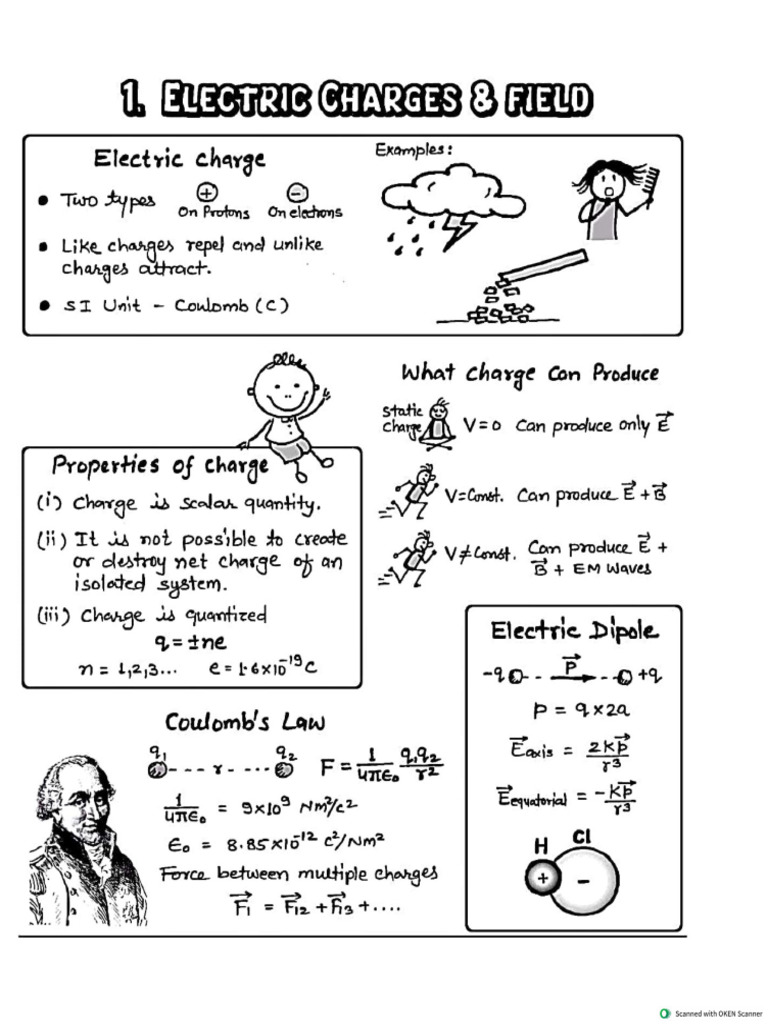 1. ELECTRIC CHARGES & FIELD
Electric charge
• Two types + -
On Protons On electrons
• Like charges repel and unlike
charges attract.
• SI Unit – Coulomb (C)
Examples:
What Charge Can Produce
Static
Charge
V=0 Can produce only E⃗
V=Const. Can produce E⃗ + B⃗
V≠Const. Can produce E⃗ +
B⃗ + EM waves
Properties of charge
(i) Charge is scalar quantity.
(ii) It is not possible to create
or destroy net charge of an
isolated system.
(iii) Charge is quantized
q = ±ne
n = 1,2,3... e = 1.6×10⁻¹⁹C
Electric Dipole
-q P⃗ +q
P = q×2a
E⃗axis = 2KP⃗/r³
E⃗equatorial = -KP⃗/r³
H Cl
+ -
Coulomb's Law
q₁ r q₂ F = 1/4πϵ₀ q₁q₂/r²
1/4πϵ₀ = 9×10⁹ Nm²/c²
ϵ₀ = 8.85×10⁻¹² c²/Nm²
Force between multiple charges
F⃗₁ = F⃗₁₂ + F⃗₁₃ + ....
Scanned with OKEN Scanner